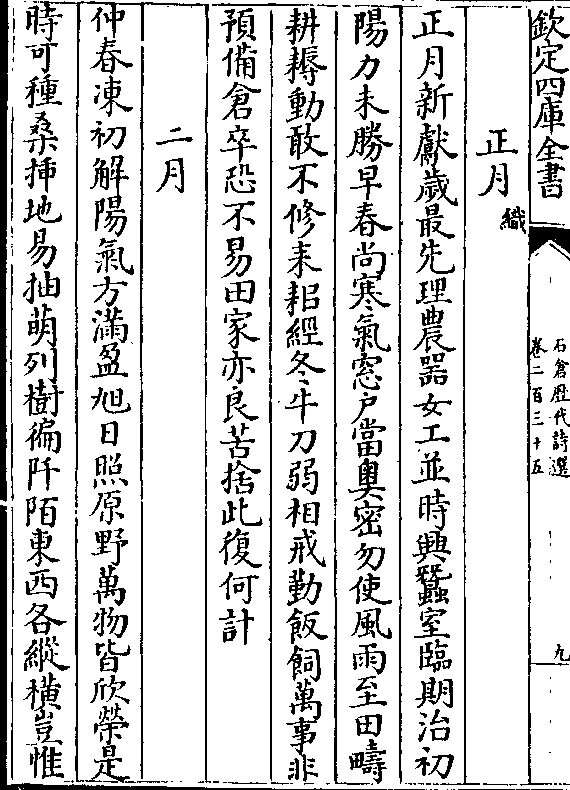 欽定四庫全書
石倉歷代詩選
卷二百三十五
九
正月 織
正月新獻歲最先理農器女工並時興蠶室臨期治初
陽力未勝早春尚寒氣窓户當奥密勿使風雨至田疇
耕耨動敢不修耒耜經冬牛刀弱相戒勤飯飼萬事非
預備倉卒恐不易田家亦良苦捨此復何計
二月
仲春凍初解陽氣方滿盈旭日照原野萬物皆欣榮是
時可種桑插地易抽萌列樹徧阡陌東西各縱横豈惟